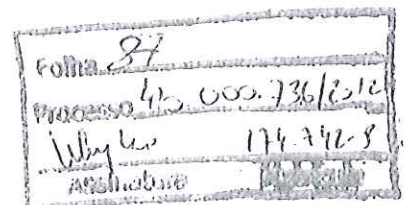 Folha 87
Processo 45.000.736/2012
174.742-8
Assinatura